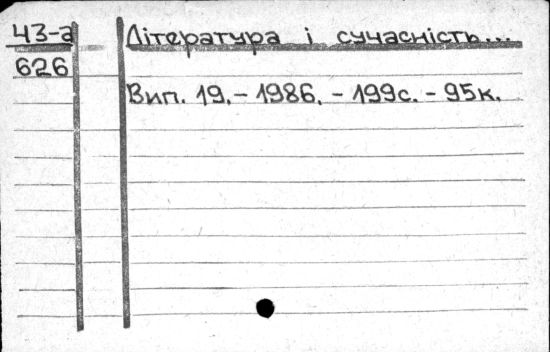 43-а
626
Література і сучасність...
Вип. 19. - 1986. - 199с. - 95к.